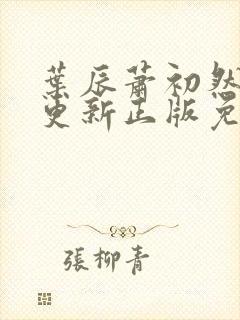 葉辰蕭初然
更新正版免
張柳青